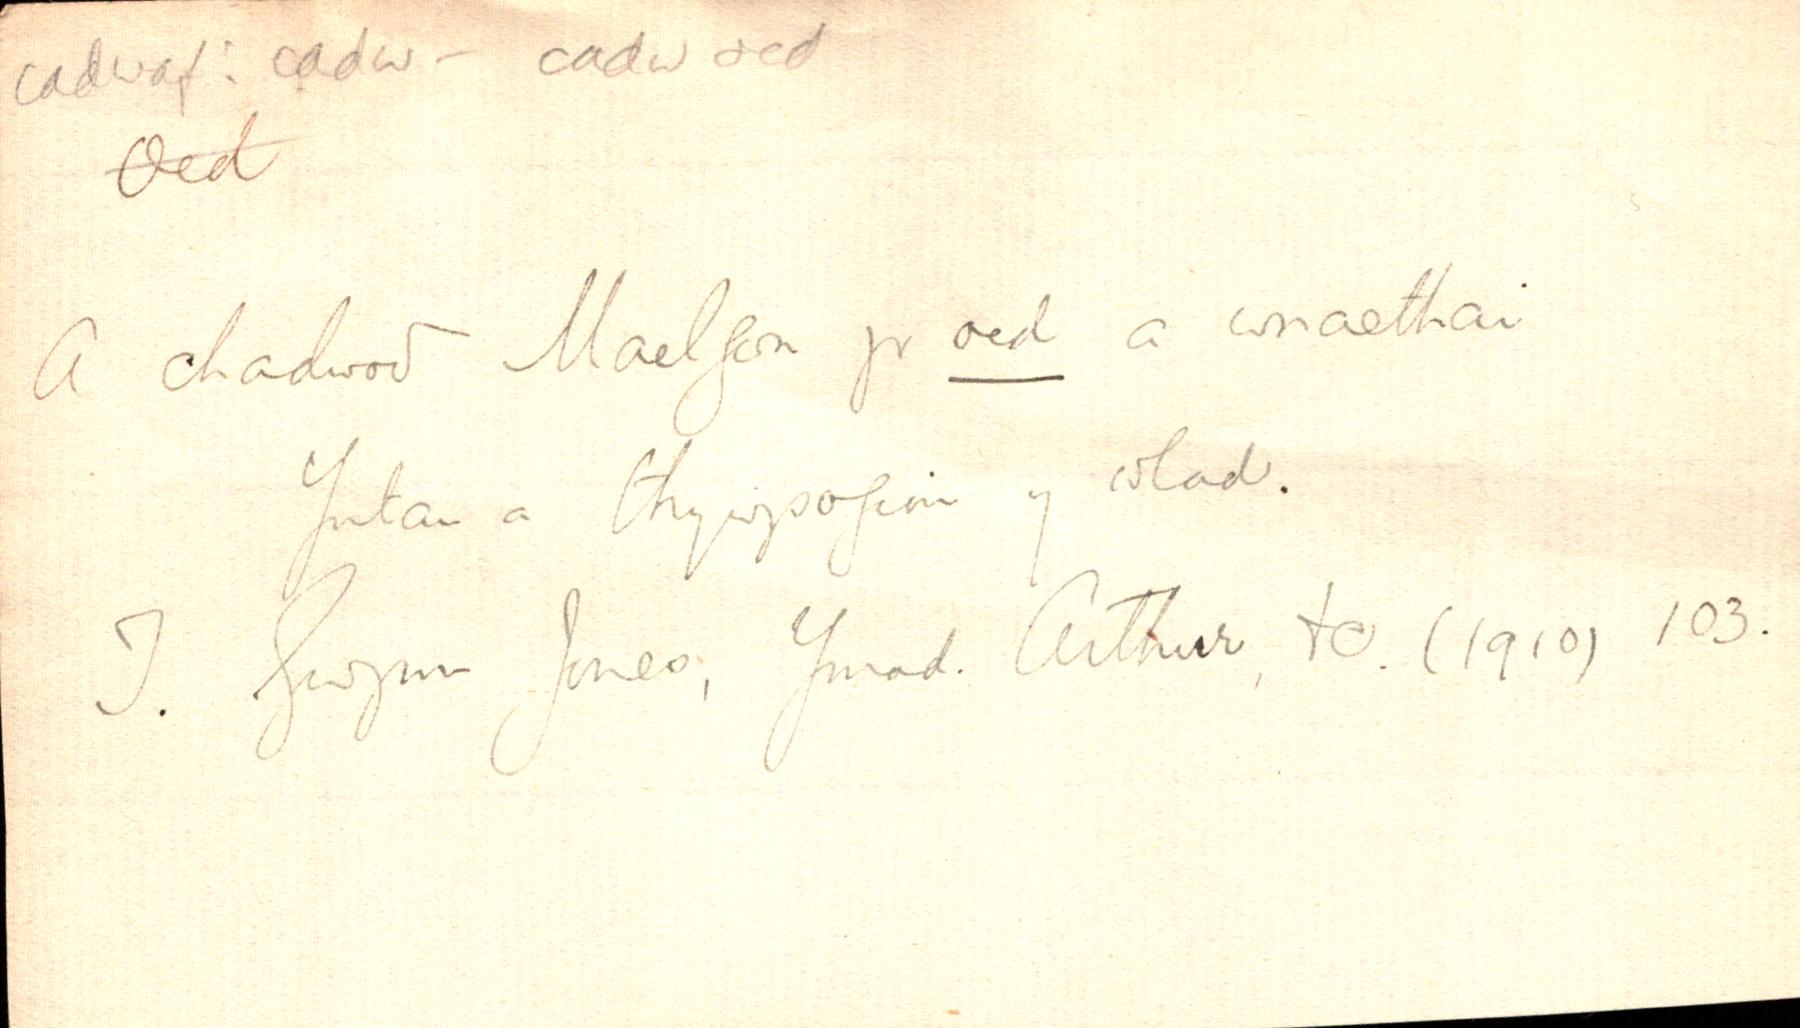 cadwaf: cadw – cadw oed
Oed
A chadwodd Maelgwn yr oed a wnaethai
Yntau a thywysogion y wlad.
T. Gwynn Jones, Ymad. Arthur, &c. (1910) 103.